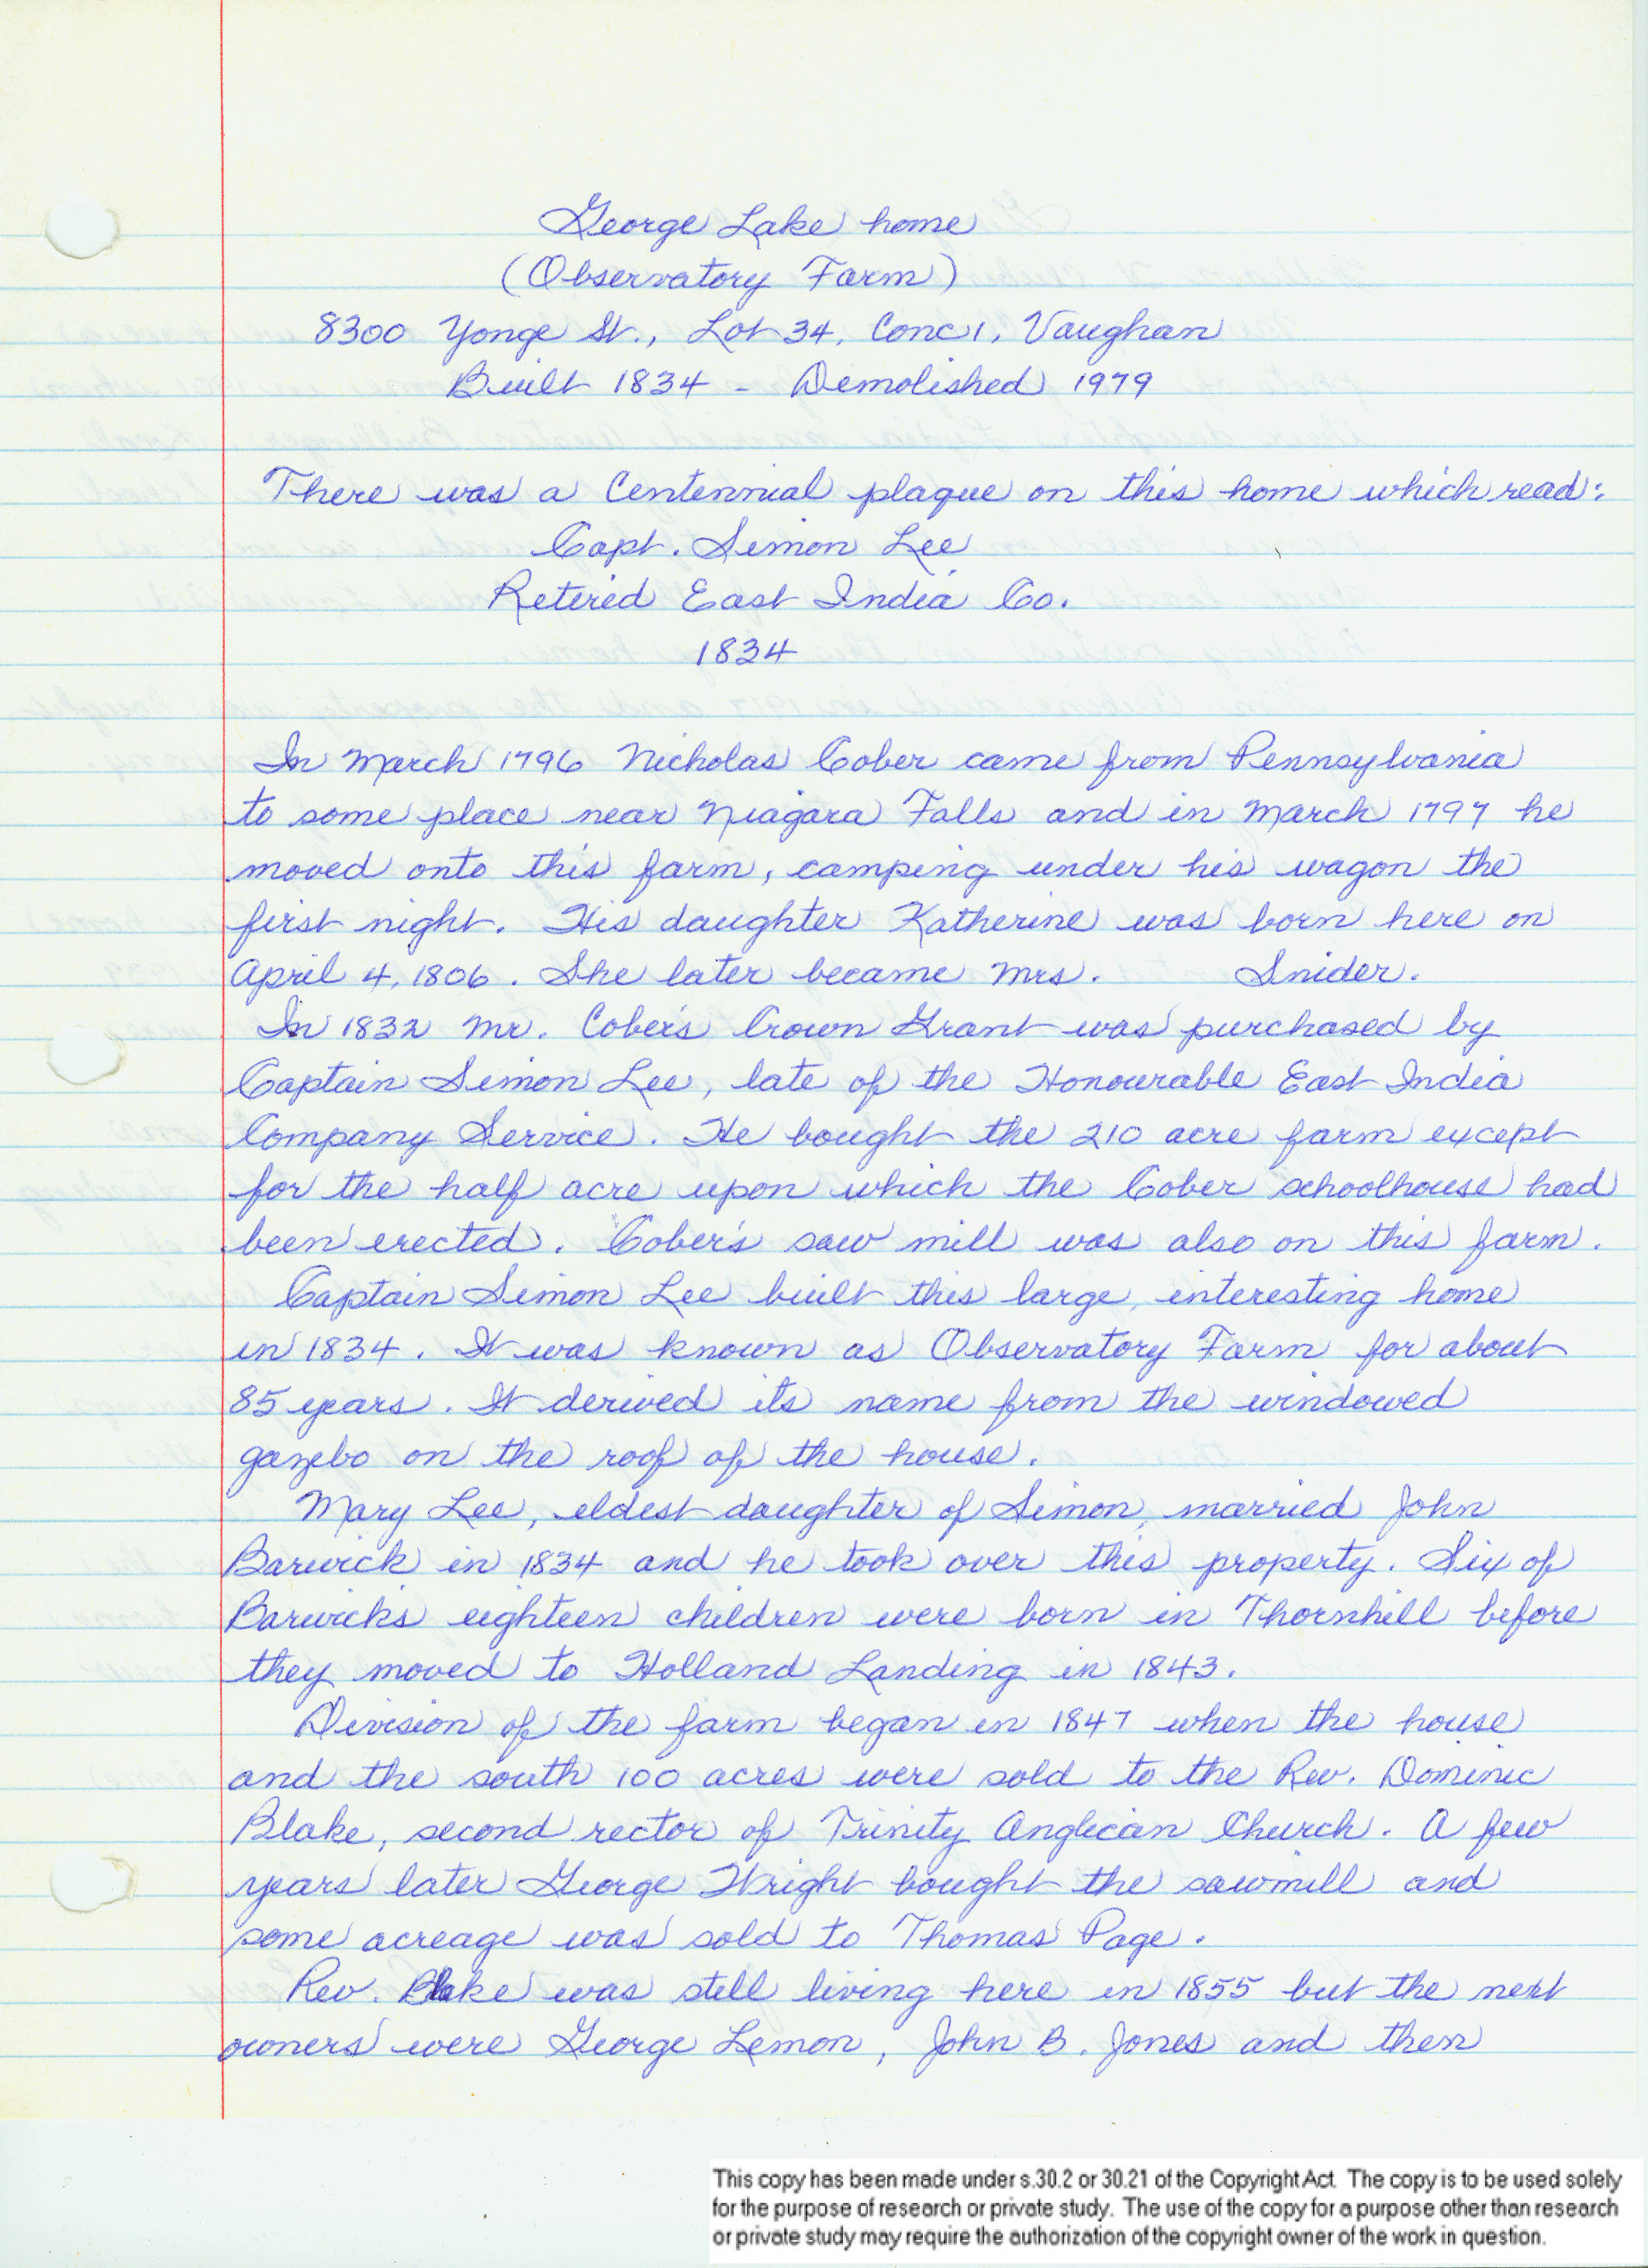 George Lake home
(Observatory Farm)
8300 Yonge St., Lot 34, Conc 1, Vaughan
Built 1834 - Demolished 1979
There was a Centennial plaque on this home which read:
Capt. Simon Lee
Retired East India Co.
1834
In March 1796 Nicholas Cober came from Pennsylvania
to some place near Niagara Falls and in March 1797 he
moved onto this farm, camping under his wagon the
first night. His daughter Katherine was born here on
April 4, 1806. She later became Mrs. Snider.
In 1832 Mr. Cober's Crown Grant was purchased by
Captain Simon Lee, late of the Honourable East India
Company Service. He bought the 210 acre farm except
for the half acre upon which the Cober schoolhouse had
been erected. Cober's saw mill was also on this farm.
Captain Simon Lee built this large, interesting home
in 1834. It was known as Observatory Farm for about
85 years. It derived its name from the windowed
gazebo on the roof of the house.
Mary Lee, eldest daughter of Simon, married John
Barwick in 1834 and he took over this property. Six of
Barwicks eighteen children were born in Thornhill before
they moved to Holland Landing in 1843.
Division of the farm began in 1847 when the house
and the south 100 acres were sold to the Rev. Dominic
Blake, second rector of Trinity Anglican Church. A few
years later George Wright bought the sawmill and
some acreage was sold to Thomas Page.
Rev. Blake was still living here in 1855 but the next
owners were George Lemon, John B. Jones and then
This copy has been made under s.30.2 or 30.21 of the Copyright Act. The copy is to be used solely
for the purpose of research or private study. The use of the copy for a purpose other than research
or private study may require the authorization of the copyright owner of the work in question.